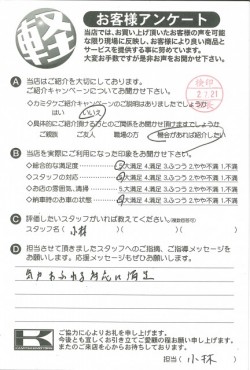 軽
お客様アンケート
当店では、お買い上げ頂いたお客様の声を可能な限り現場に反映し、お客様により良い商品とサービスを提供する事に努めています。
大変お手数ですが是非お声をお聞かせ下さい。
A 当店はご紹介を大切にしております。
ご紹介キャンペーンについてお聞かせ下さい。
◇カミタケご紹介キャンペーンのご説明はありましたでしょうか
はい いいえ
◇具体的にご紹介頂けるとのご関係をお聞かせ頂けますでしょうか
ご親戚 ご友人 職場の方 機会があれば紹介したい
B 当店を実際にご利用になった印象をお聞かせ下さい。
◇総合的な満足度 5.大満足 4.満足 3.ふつう 2.やや不満 1.不満
◇スタッフの対応 5.大満足 4.満足 3.ふつう 2.やや不満 1.不満
◇お店の雰囲気、清掃 5.大満足 4.満足 3.ふつう 2.やや不満 1.不満
◇納車時のお車の状態 5.大満足 4.満足 3.ふつう 2.やや不満 1.不満
C 評価したいスタッフがいれば教えてください。(複数回答可)
スタッフ名( 小林 )( )( )
D 担当させて頂きましたスタッフへのご指摘、ご指導メッセージをお願いします。応援メッセージもぜひお願いします。
K
ご協力に心よりお礼を申し上げます。
今後とも宜しくお引き立てご愛顧の程お願い申し上げます。
またのご来店を心からお待ちしております。
担当( 小林 )